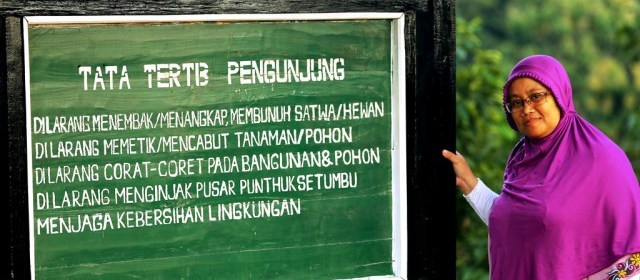 TATA TERTIB PENGUNJUNG
DILARANG MENEMBAK/MENANGKAP, MEMBUNUH SATWA/HEWAN
DI LARANG MEMETIK/MENCABUT TANAMAN/POHON
DI LARANG CORAT-CORET PADA BANGUNAN & POHON
DI LARANG MENGINJAK PUSAR PUNTHUK SETUMBU
MENJAGA KEBERSIHAN LINGKUNGAN